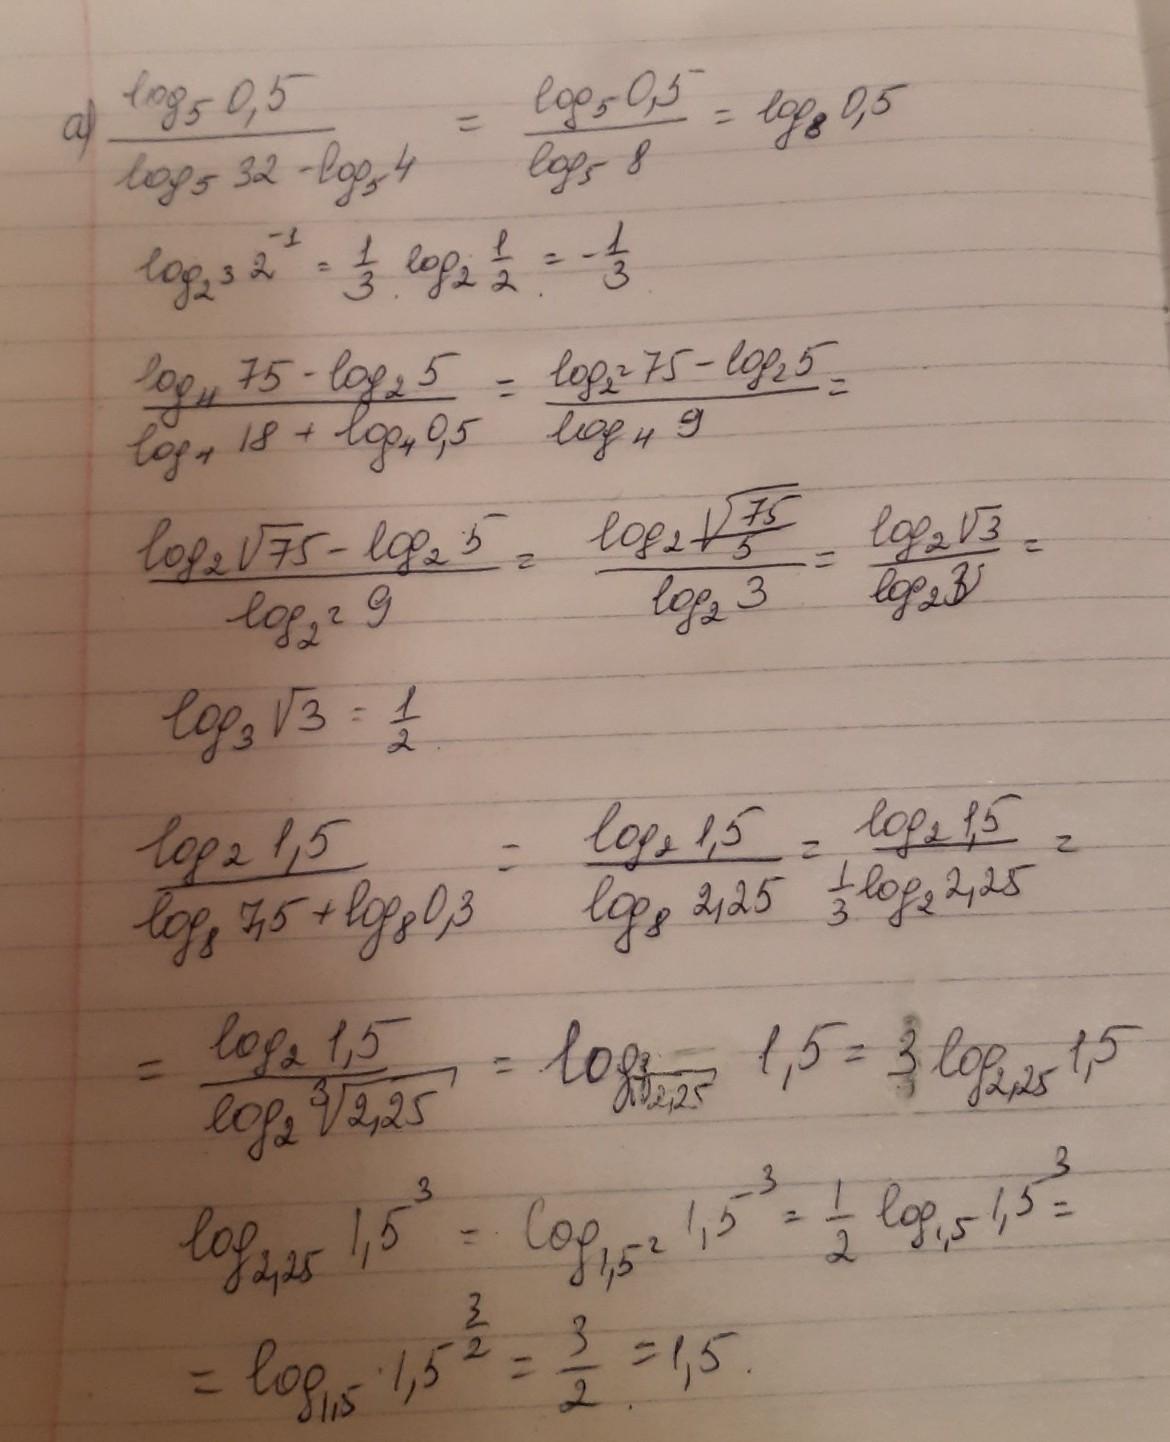 а) log₅ 0,5 / (log₅ 32 - log₅ 4) = log₅ 0,5 / log₅ 8 = log₈ 0,5
log_{2³} 2⁻¹ = 1/3 · log₂ 1/2 = -1/3
(log₄ 75 - log₂ 5) / (log₄ 18 + log₄ 0,5) = (log_{2²} 75 - log₂ 5) / log₄ 9 =
(log₂ √75 - log₂ 5) / log_{2²} 9 = log₂ (√75 / 5) / log₂ 3 = log₂ √3 / log₂ 3 =
log₃ √3 = 1/2.
log₂ 1,5 / (log₈ 7,5 + log₈ 0,3) = log₂ 1,5 / log₈ 2,25 = log₂ 1,5 / (1/3 log₂ 2,25) =
= log₂ 1,5 / log₂ ∛2,25 = log_{∛2,25} 1,5 = 3 log_{2,25} 1,5
log_{2,25} 1,5³ = log_{1,5²} 1,5³ = 1/2 log_{1,5} 1,5³ =
= log_{1,5} 1,5^{3/2} = 3/2 = 1,5.